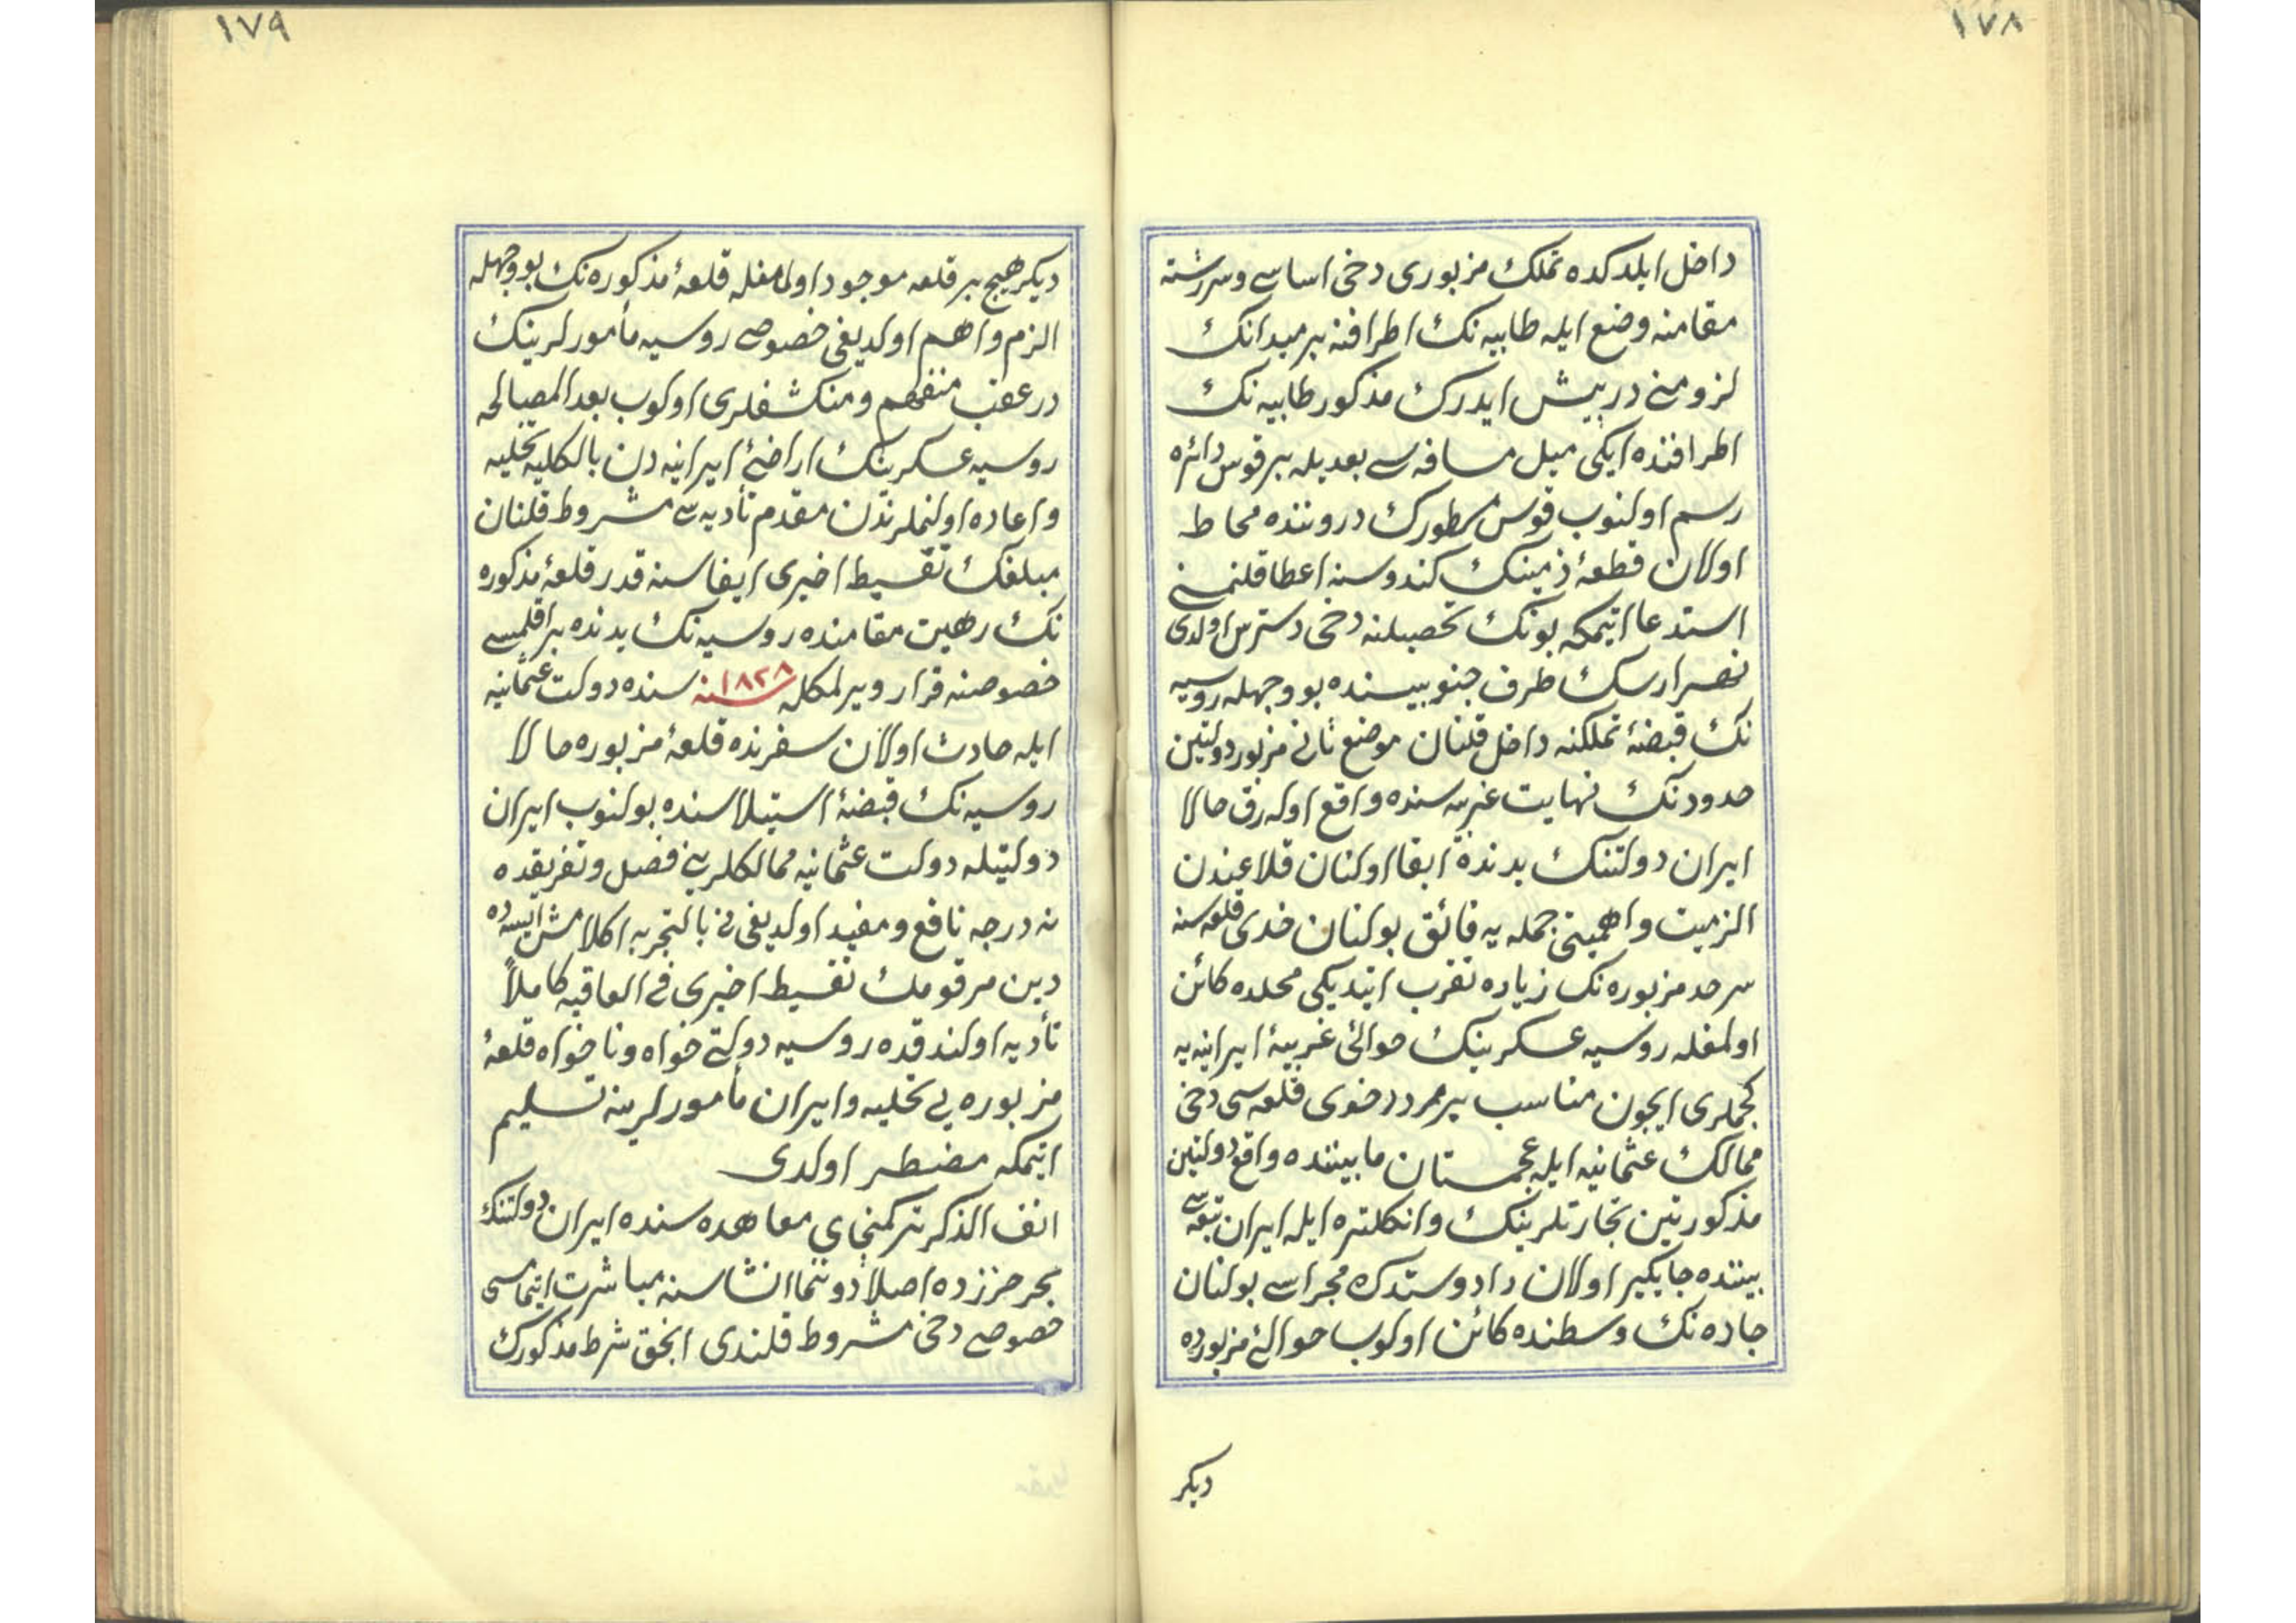 ١٧٨
داخل ایلدکده تملک مزبوری دخی اساسی و سررشته
مقامنه وضع ایله طابیه نک اطرافنه بر میدانک
لزومنی درپیش ایدرک مذکور طابیه نک
اطرافنده ایکی میل مسافه سی بعدیله بر قوس دائره
رسم اولنوب قوس مسطورک دروننده محاط
اولان قطعۀ زمینک کندوسنه اعطا قلنمنی
استدعا ایتمکه بونک تحصیلنه دخی دسترس اولدی
نهر ارسک طرف جنوبیسنده بووجهله روسیه
نک قبضۀ تملکنه داخل قلنان موضع ثانی مزبور دولتین
حدودنک نهایت غربیه سنده واقع اوله رق حالا
ایران دولتنک یدنده ابقا اولنان قلاعندن
الزمیت و اهمیتی جمله یه فائق بولنان خوی قلعه سنه
سرحد مزبوره نک زیاده تقرب ایتدیکی محلده کائن
اولمغله روسیه عسکرینک حوالئ غربیۀ ایرانیه یه
کچملری ایچون مناسب بر ممردر خوی قلعه سی دخی
ممالک عثمانیه ایله عجمستان مابیننده واقع دولتین
مذکورتین تجارتلرینک و انکلتره ایله ایران تبعه سی
بیننده جایکیر اولان داد و ستدک مجراسی بولنان
جاده نک وسطنده کائن اولوب حوالئ مزبوره ده
دیکر
١٧٩
دیکر هیچ بر قلعه موجود اولمامغله قلعۀ مذکوره نک بووجهله
الزم و اهم اولدیغی خصوصی روسیه مأمورلرینک
درعقب منفهم و منکشفلری اولوب بعد المصالحه
روسیه عسکرینک اراضئ ایرانیه دن بالکلیه تخلیه
و اعاده اولنملرندن مقدم تأدیه سی مشروط قلنان
مبلغک تقسیط اخیری ایفاسنه قدر قلعۀ مذکوره
نک رهین مقامنده روسیه نک یدنده براقلمسی
خصوصنه قرار ویرلمکله ١٨٢٨ سنه سنده دولت عثمانیه
ایله حادث اولان سفرنده قلعۀ مزبوره حالا
روسیه نک قبضۀ استیلاسنده بولنوب ایران
دولتیله دولت عثمانیه ممالکلرینی فصل و تفریقده
نه درجه نافع و مفید اولدیغی نی بالتجربه اکلامش ایسه ده
دین مرقومک تقسیط اخیری فی العاقبه کاملاً
تأدیه اولندقده روسیه دولتی خواه و ناخواه قلعۀ
مزبوره یی تخلیه و ایران مأمورلرینه تسلیم
ایتمکه مضطر اولدی
انف الذکر ترکمنچای معاهده سنده ایران دولتنک
بحر حزرده اصلا دوننما انشاسنه مباشرت ایتمامسی
خصوصی دخی مشروط قلندی انجق شرط مذکورک